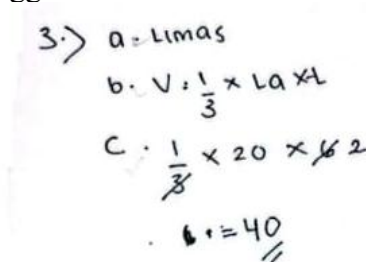 3.) a. Limas
b. V : 1/3 × La × L
C. 1/3 × 20 × 6 2
= 40